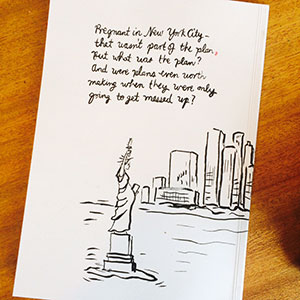 Pregnant in New York City –
that wasn't part of the plan,
But what was the plan?
And were plans even worth
making when they were only
going to get messed up?